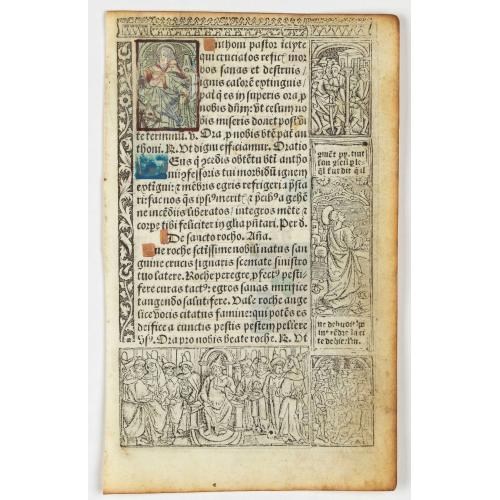 Anthoni pastor inclyte
qui cruciatos refici mor
bos sanas et destruis /
ignis calorē extinguis /
pat q es in superis ora p
nobis dn̄m: vt celum no
bis miseris donet post vi
te terminū. v. Ora p nobis btē pat an
thoni. R. Vt digni efficiamur. Oratio
Eus q ꝯcedis obtētu bti antho
nij ꝯfessoris tui morbidū ignem
extīgui: et mēbris egris refrigeria p̄sta
ri: fac nos q̄s ipsiꝰ meritꝭ et p̄cibꝰ a gehē
ne incēdijs liberatos / integros mēte et
corpe tibi feliciter in glia p̄n̄tari. Per d.
De sancto rocho. Añ̄a.
ue roche sctissime nobili natus san
guine crucis signaris scemate sinistro
tuo latere. Roche peregre ꝓfectꝰ pesti
fere curas tactꝰ: egros sanas mirifice
tangendo salutifere. Vale roche ange
lice vocis citatus famine: qui potēs es
deifice a cunctis pestis pestem pellere
Ora pro nobis beate roche. R. Vt
ql sur dit qil
ne de huos
te de hier